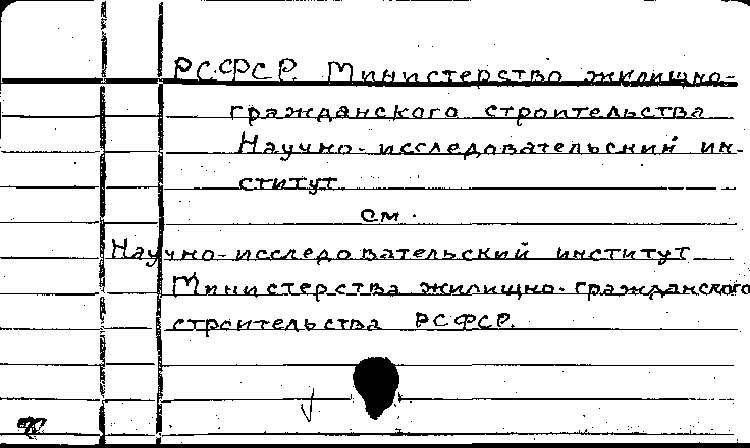 РСФСР. Министерство жилищно-
гражданского строительства
Научно-исследовательский ин-
ститут
см.
Научно-исследовательский институт
Министерства жилищно-гражданского
строительства РСФСР.